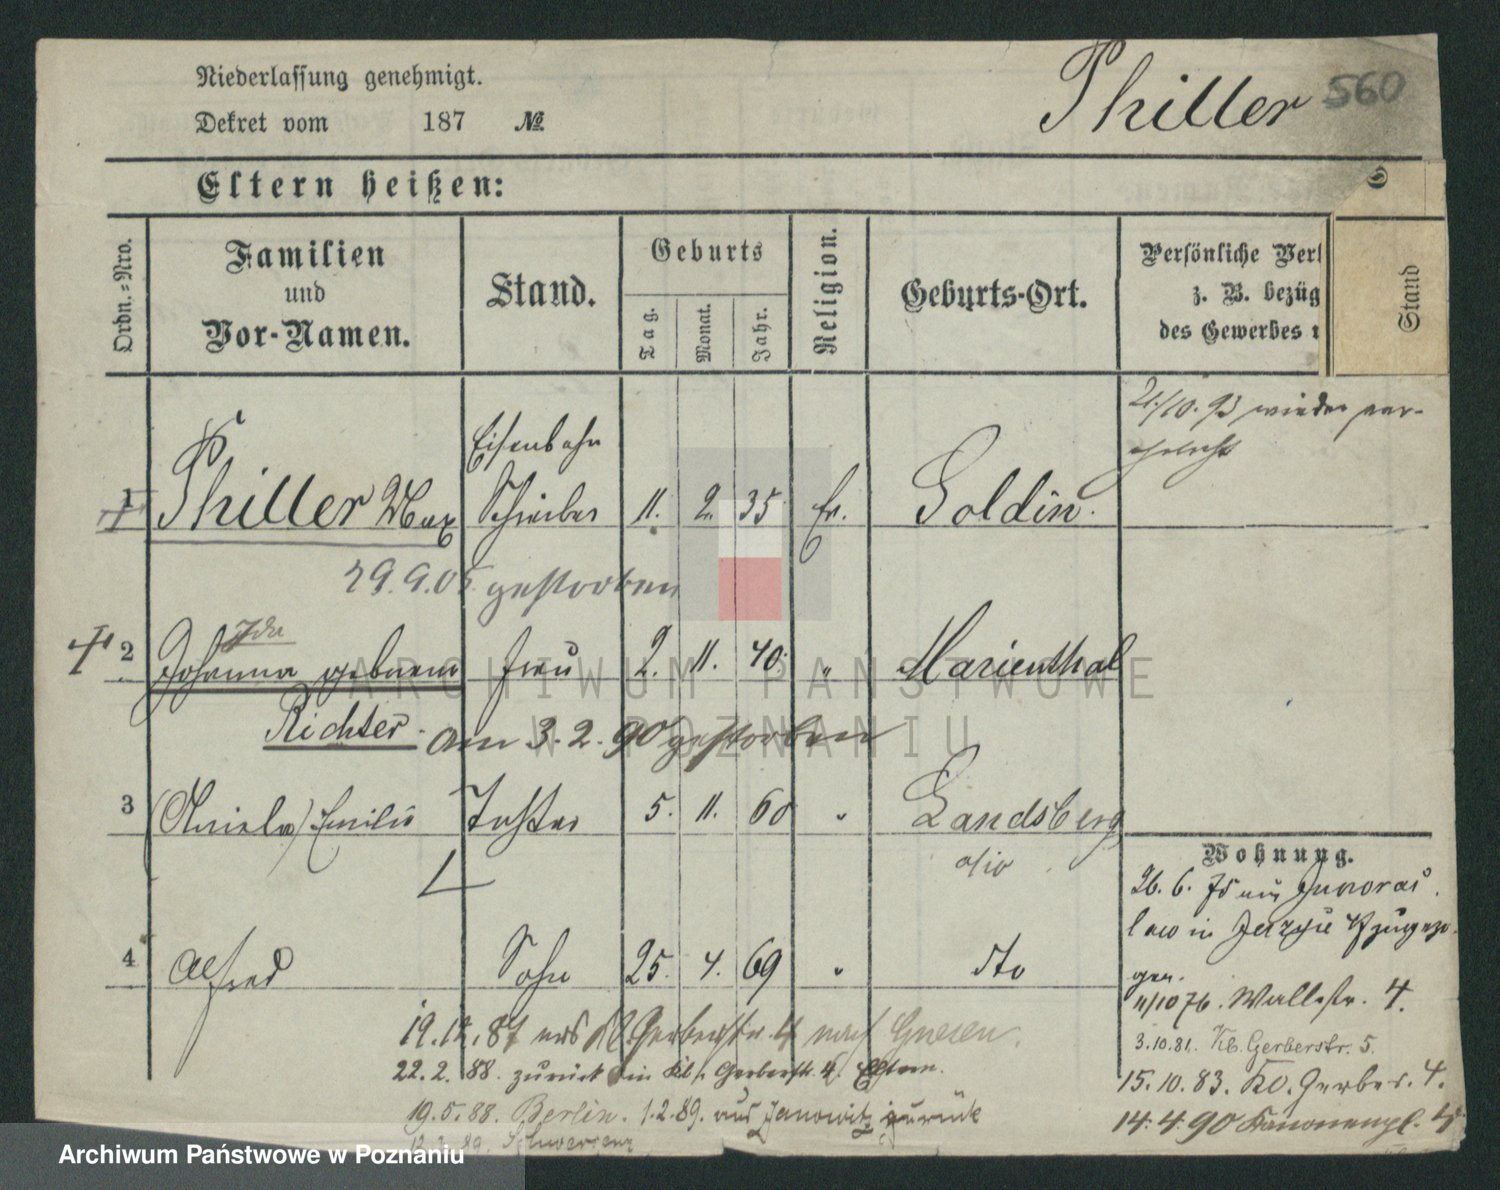 Niederlassung genehmigt.
Dekret vom 187 №
Thiller 560
Eltern heißen:
Ordn.=Nro.
Familien
und
Vor-Namen.
Stand.
Geburts
Tag.
Monat.
Jahr.
Religion.
Geburts-Ort.
Persönliche Ver
z. B. bezüg
des Gewerbes
Stand
21/10. 93 wieder ver-
ehelicht
Eisenbahn
1 Thiller Max Schreiber 11. 2. 35 Ev. Goldin.
29.9.05 gestorben
Ida
2 Johanna geborene Frau 2. 11. 40 " Marienthal
Richter. am 3.2.90 gestorben
3 (Aniela) Emilie Tochter 5. 11. 60 " Landsberg
4 Alfred Sohn 25. 4. 69 " dto
Wohnung.
26. 6. 75 aus
in zugezo-
gen.
11/10 76. Wallstr. 4.
3.10.81. Kl. Gerberstr. 5.
15.10.83. Kl. Gerber. 4.
14.4.90 Kanonenpl. 4
19.12.87 aus Kl Gerberstr. 4 nach Gnesen.
22.2.88. zurück Kl. Gerberstr. 4. Eltern.
19.5.88. Berlin. 1.2.89. aus Janowitz zurück
ARCHIWUM PAŃSTWOWE
W POZNANIU
Archiwum Państwowe w Poznaniu